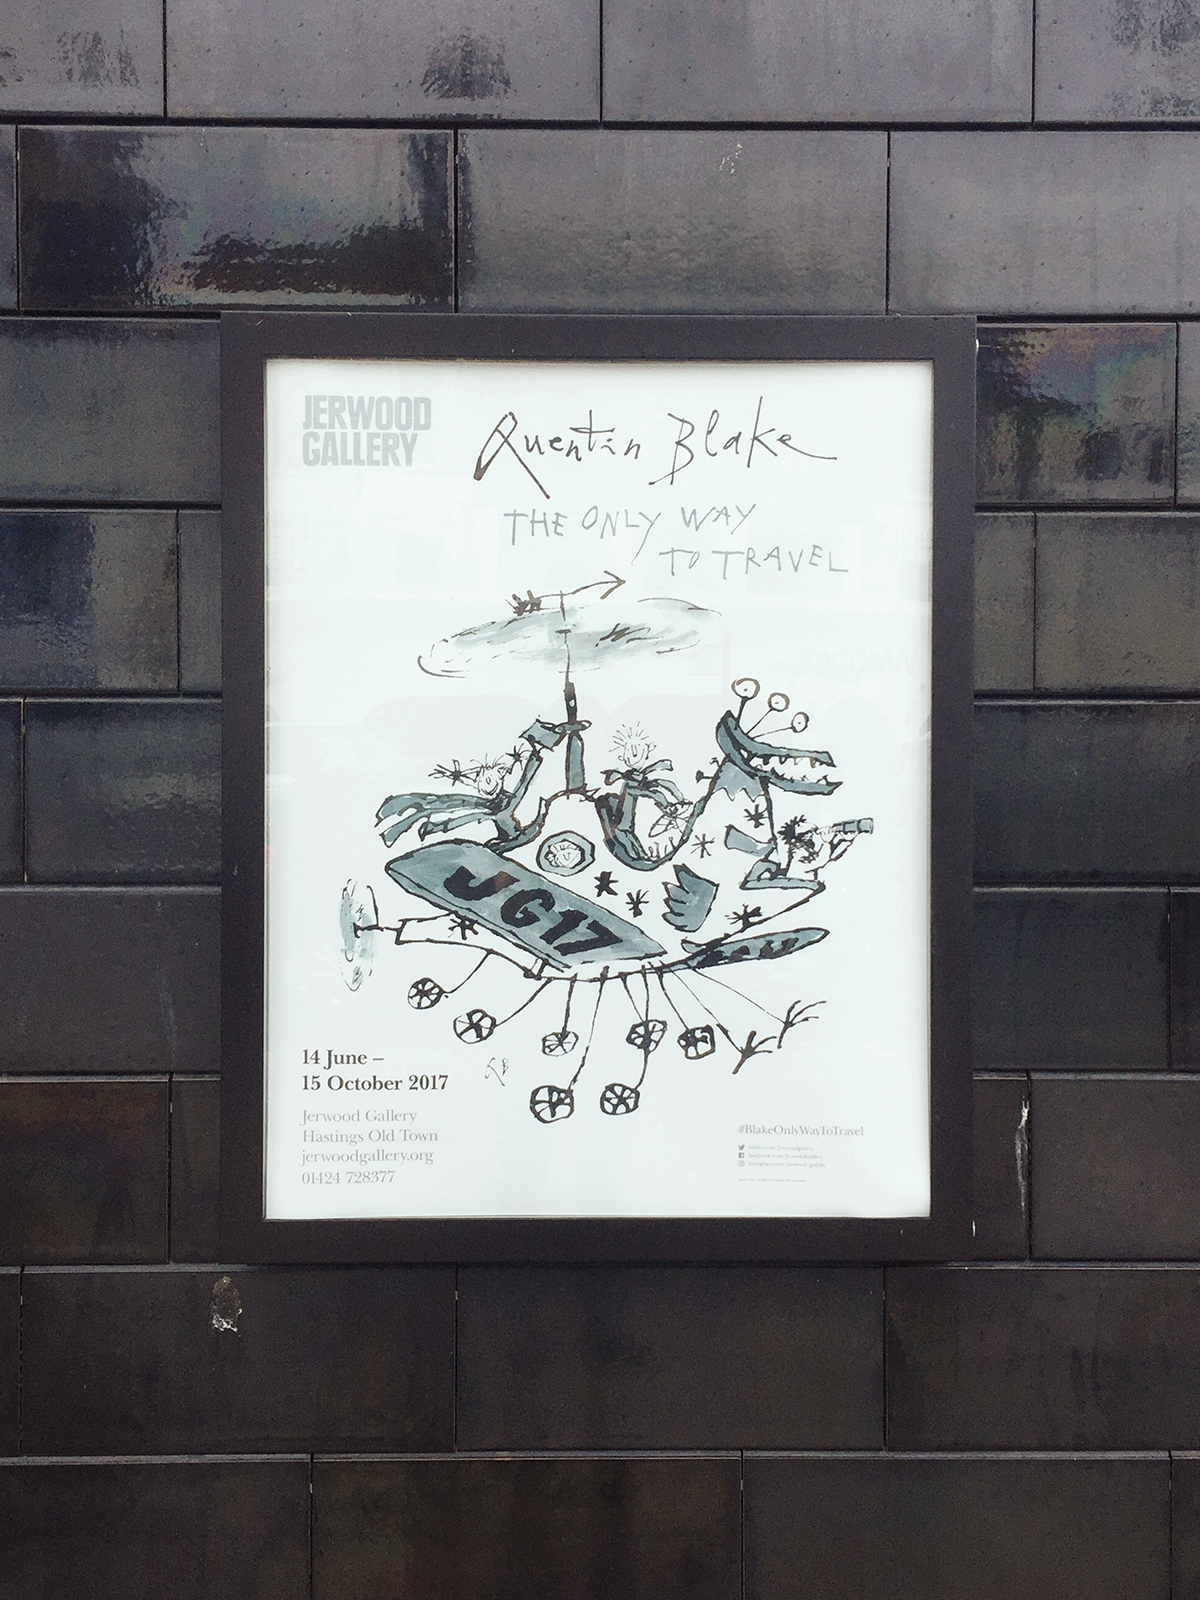 JERWOOD
GALLERY
Quentin Blake
THE ONLY WAY
TO TRAVEL
JG17
QB
14 June –
15 October 2017
Jerwood Gallery
Hastings Old Town
jerwoodgallery.org
01424 728377
#BlakeOnlyWayToTravel
twitter.com/jerwoodgallery
facebook.com/JerwoodGallery
instagram.com/jerwood_gallery